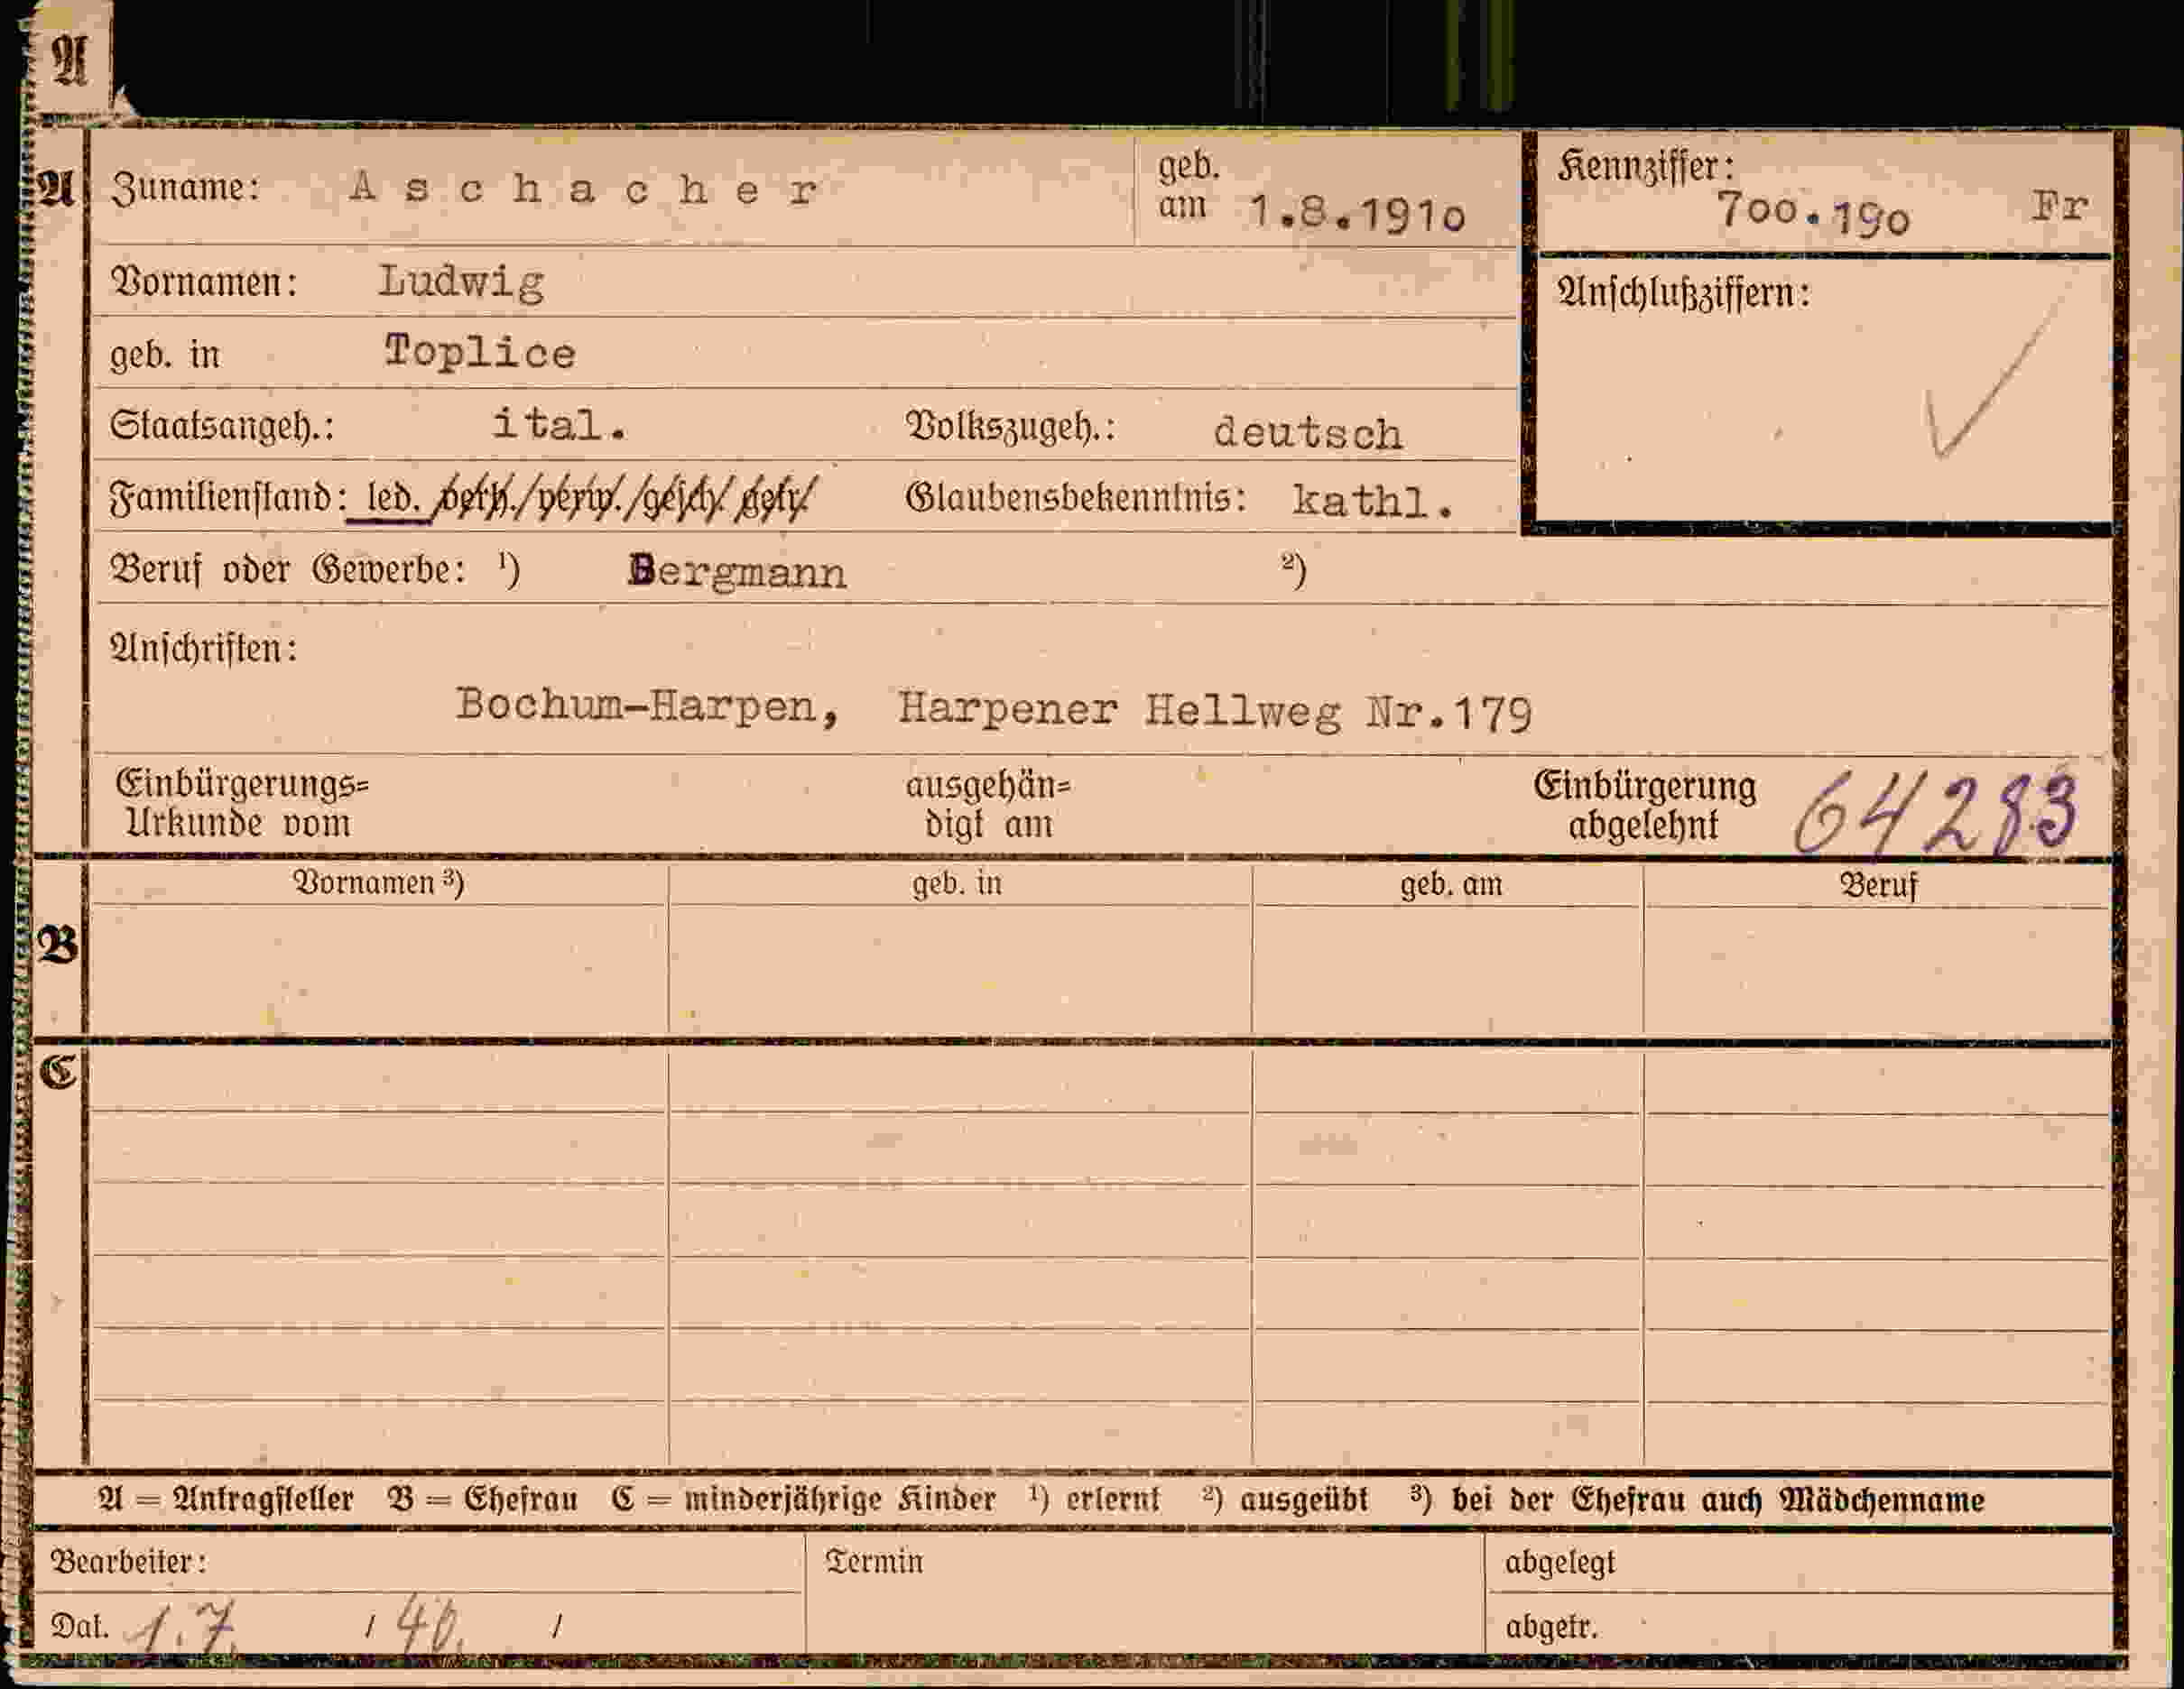 A
A Zuname: Aschacher geb. am 1.8.1910 Kennziffer: 700.190 Fr
Vornamen: Ludwig Anschlußziffern:
geb. in Toplice
Staatsangeh.: ital. Volkszugeh.: deutsch
Familienstand: led. verh./verw./gesch/ getr/ Glaubensbekenntnis: kathl.
Beruf oder Gewerbe: ¹) Bergmann ²)
Anschriften:
Bochum-Harpen, Harpener Hellweg Nr.179
Einbürgerungs= ausgehän= Einbürgerung 64283
Urkunde vom digt am abgelehnt
Vornamen ³) geb. in geb. am Beruf
B
C
A = Antragsteller B = Ehefrau C = minderjährige Kinder ¹) erlernt ²) ausgeübt ³) bei der Ehefrau auch Mädchenname
Bearbeiter: Termin abgelegt
Dat. 1.7. / 40. / abgetr.